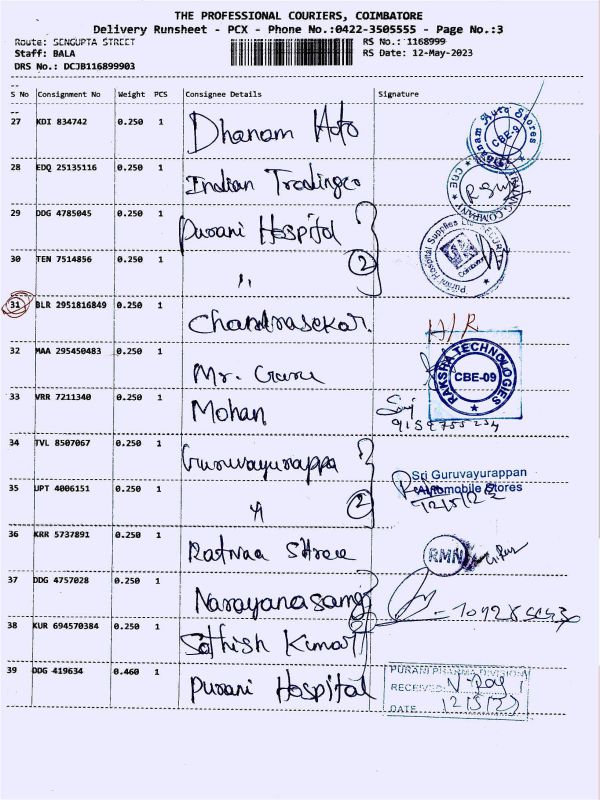 THE PROFESSIONAL COURIERS, COIMBATORE
Delivery Runsheet - PCX - Phone No.:0422-3505555 - Page No.:3
Route: SENGUPTA STREET RS No.: 1168999
Staff: BALA RS Date: 12-May-2023
DRS No.: DCJB116899903
S No Consignment No Weight PCS Consignee Details Signature
27 KDI 834742 0.250 1 Dhanam Auto
CBE-9
28 EDQ 25135116 0.250 1 Indian Trading co
29 DDG 4785045 0.250 1 Purani Hospital
30 TEN 7514856 0.250 1 " 2
Purani Hospital Supplies
31 BLR 2951816849 0.250 1 Chandrasekar.
32 MAA 295450483 0.250 1 Mr.
RAKSHA TECHNOLOGIES
CBE-09
33 VRR 7211340 0.250 1 Mohan
34 TVL 8507067 0.250 1 Guruvayurappa
Sri Guruvayurappan
Automobile Stores
35 UPT 4006151 0.250 1 " 2
12/5/23
36 KRR 5737891 0.250 1 Ratnaa Stree
RMN
37 DDG 4757028 0.250 1 Narayanasamy
38 KUR 694570384 0.250 1 Sathish Kumar 2
39 DDG 419634 0.460 1 Purani Hospital
PURANI PHARMA DIVISION
RECEIVED
DATE 12/5/23